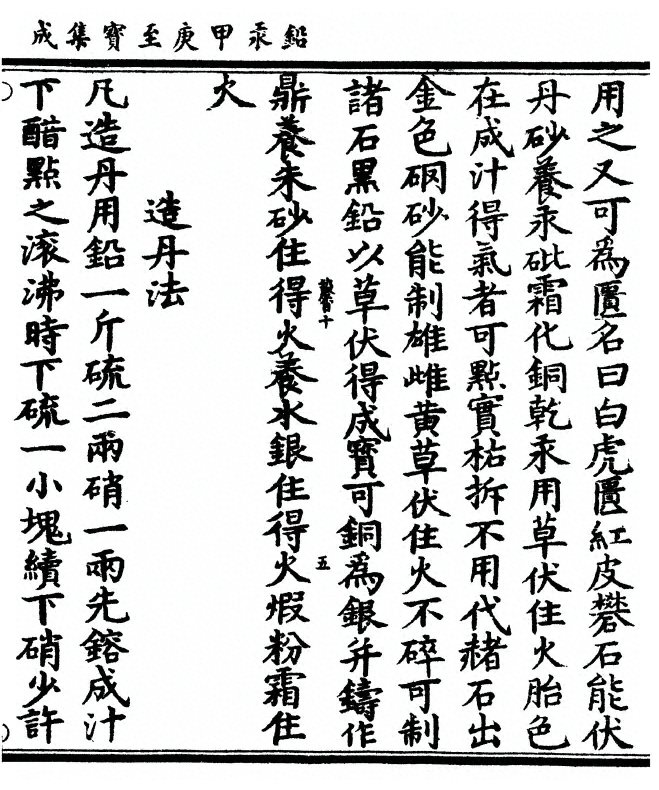 鉛汞甲庚至寶集成
用之又可為匱名曰白虎匱紅皮礬石能伏
丹砂養汞砒霜化銅乾汞用草伏住火胎色
在成汁得氣者可點實枯拆不用代赭石出
金色硇砂能制雄雌黃草伏住火不碎可制
諸石黑鉛以草伏得成寶可銅為銀并鑄作
鼎養朱砂住得火養水銀住得火煆粉霜住
五
火
造丹法
凡造丹用鉛一斤硫二兩硝一兩先鎔成汁
下醋點之滚沸時下硫一小塊續下硝少許